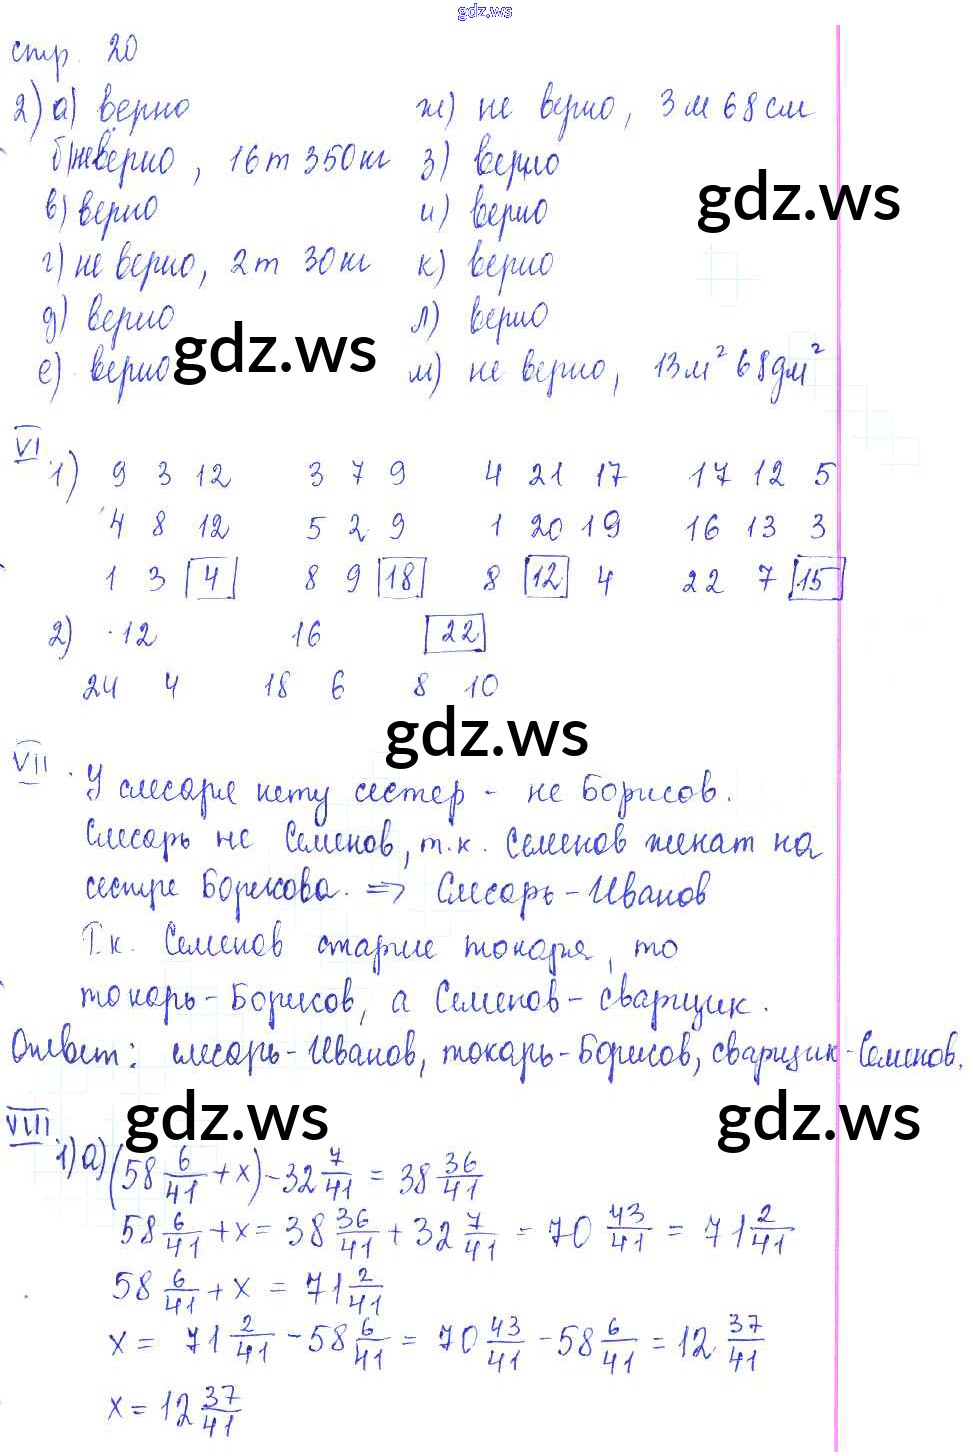 gdz.ws
стр. 20
2) а) верно ж) не верно, 3 м 68 см
б) неверно, 16 т 350 кг з) верно
gdz.ws
в) верно и) верно
г) не верно, 2 т 30 кг к) верно
д) верно л) верно
gdz.ws
е) верно м) не верно, 13 м² 68 дм²
VI
1) 9 3 12 3 7 9 4 21 17 17 12 5
4 8 12 5 2 9 1 20 19 16 13 3
1 3 4 8 9 18 8 12 4 22 7 15
2) 12 16 22
24 4 18 6 8 10
gdz.ws
VII. У слесаря нету сестер - не Борисов.
Слесарь не Семенов, т.к. Семенов женат на
сестре Борисова. => Слесарь - Иванов
Т.к. Семенов старше токаря, то
токарь - Борисов, а Семенов - сварщик.
Ответ: слесарь - Иванов, токарь - Борисов, сварщик - Семенов.
gdz.ws gdz.ws
VIII
1) а) (58 6/41 + x) - 32 7/41 = 38 36/41
58 6/41 + x = 38 36/41 + 32 7/41 = 70 43/41 = 71 2/41
58 6/41 + x = 71 2/41
x = 71 2/41 - 58 6/41 = 70 43/41 - 58 6/41 = 12 37/41
x = 12 37/41